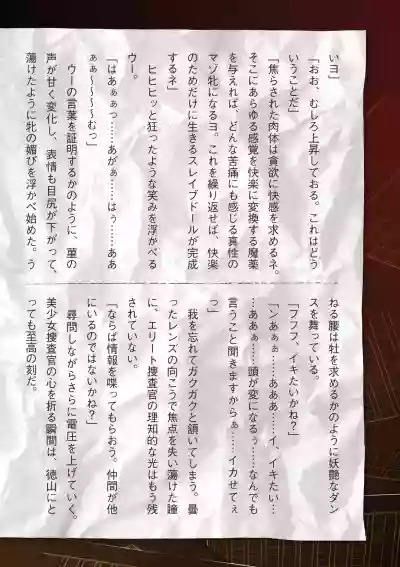 いヨ」
「おお、むしろ上昇しておる。これはどう
いうことだ」
「焦らされた肉体は貪欲に快感を求めるネ。
そこにあらゆる感覚を快楽に変換する魔薬
を与えれば、どんな苦痛にも感じる真性の
マゾ牝になるヨ。これを繰り返せば、快楽
のためだけに生きるスレイブドールが完成
するネ」
ヒヒヒッと狂ったような笑みを浮かべる
ウー。
「はあぁぁっ……あがぁ……はぅ……ああ
ぁぁ〜〜〜〜むっ」
ウーの言葉を証明するかのように、菫の
声が甘く変化し、表情も目尻が下がって、
蕩けたように牝の媚びを浮かべ始めた。う
ねる腰は牡を求めるかのように妖艶なダン
スを舞っている。
「フフフ、イキたいかね?」
「ンあぁぁ……あああ……イ、イキたい…
…ああぁ……頭が変になるぅ……なんでも
言うこと聞きますからぁ……イカせてぇ
っ」
我を忘れてガクガクと頷いてしまう。曇
ったレンズの向こうで焦点を失い蕩けた瞳
に、エリート捜査官の理知的な光はもう残
されていない。
「ならば情報を喋ってもらおう。仲間が他
にいるのではないかね?」
尋問しながらさらに電圧を上げていく。
美少女捜査官の心を折る瞬間は、徳山にと
っても至高の刻だ。